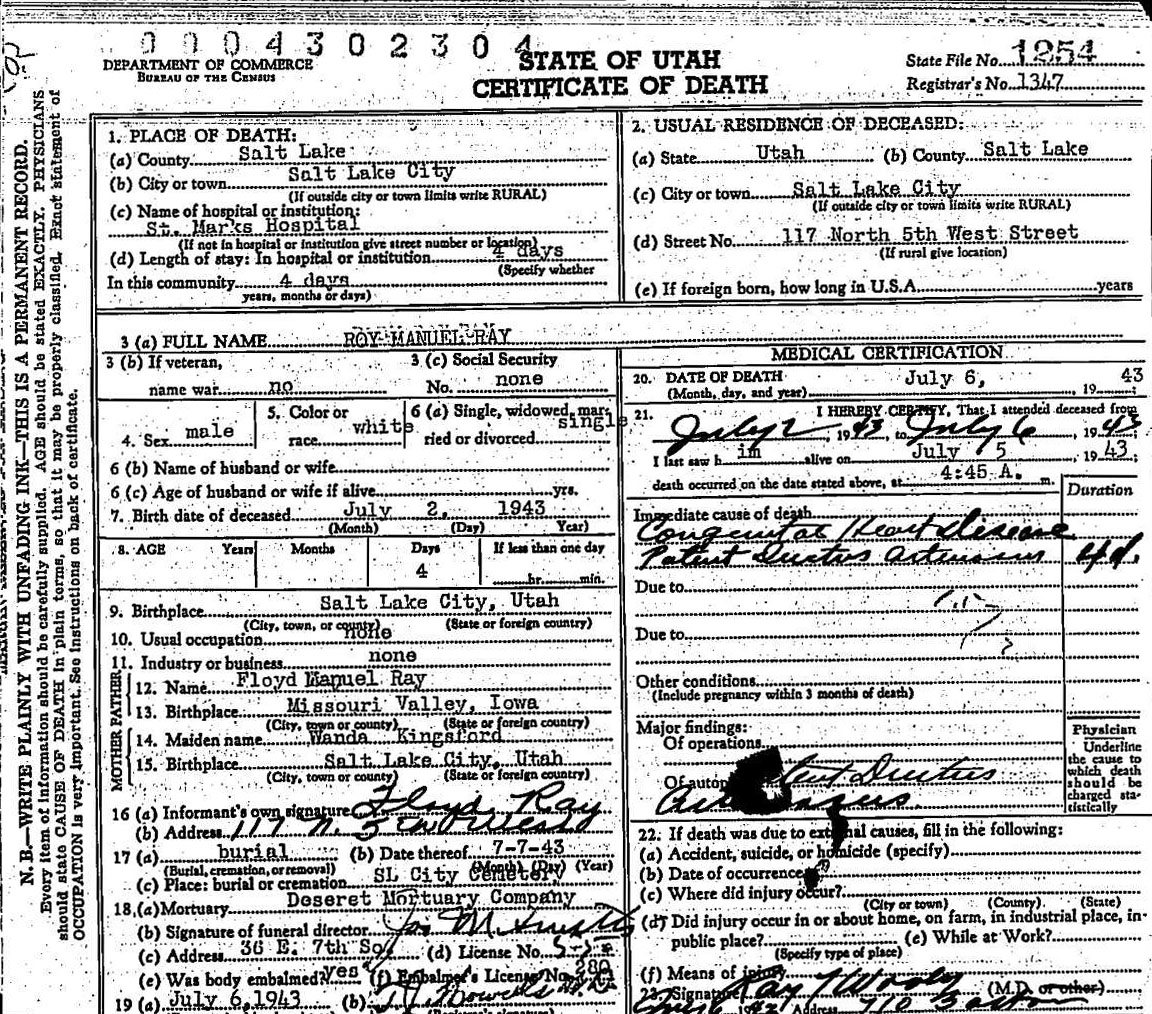 0 0 0 4 3 0 2 3 0 4
DEPARTMENT OF COMMERCE
BUREAU OF THE CENSUS
STATE OF UTAH
CERTIFICATE OF DEATH
State File No. 1254
Registrar's No. 1347
N. B.—WRITE PLAINLY WITH UNFADING INK—THIS IS A PERMANENT RECORD.
Every item of information should be carefully supplied. AGE should be stated EXACTLY. PHYSICIANS
should state CAUSE OF DEATH in plain terms, so that it may be properly classified. Exact statement of
OCCUPATION is very important. See instructions on back of certificate.
1. PLACE OF DEATH:
(a) County Salt Lake
(b) City or town Salt Lake City
(If outside city or town limits write RURAL)
(c) Name of hospital or institution:
St. Marks Hospital
(If not in hospital or institution give street number or location)
(d) Length of stay: In hospital or institution 4 days
(Specify whether
In this community 4 days
years, months or days)
2. USUAL RESIDENCE OF DECEASED:
(a) State Utah (b) County Salt Lake
(c) City or town Salt Lake City
(If outside city or town limits write RURAL)
(d) Street No. 117 North 5th West Street
(If rural give location)
(e) If foreign born, how long in U.S.A. years
3 (a) FULL NAME ROY MANUEL RAY
3 (b) If veteran,
name war no
3 (c) Social Security
No. none
4. Sex male
5. Color or
race white
6 (a) Single, widowed, mar-
ried or divorced single
6 (b) Name of husband or wife
6 (c) Age of husband or wife if alive yrs.
7. Birth date of deceased July 2, 1943
(Month) (Day) Year)
8. AGE Years Months Days If less than one day
4 hr. min.
9. Birthplace Salt Lake City, Utah
(City, town, or county) (State or foreign country)
10. Usual occupation none
11. Industry or business none
FATHER
12. Name Floyd Manuel Ray
13. Birthplace Missouri Valley, Iowa
(City, town or county) (State or foreign country)
MOTHER
14. Maiden name Wanda Kingsford
15. Birthplace Salt Lake City, Utah
(City, town or county) (State or foreign country)
16 (a) Informant's own signature Floyd Ray
(b) Address 117 N. 5
17 (a) burial (b) Date thereof 7-7-43
(Burial, cremation, or removal) (Month) (Day) (Year)
(c) Place: burial or cremation SL City Cemetery
18. (a) Mortuary Deseret Mortuary Company
(b) Signature of funeral director
(c) Address 36 E. 7th So. (d) License No.
(e) Was body embalmed? yes (f) Embalmer's License No. 280
19 (a) July 6, 1943 (b)
(Registrar's signature)
MEDICAL CERTIFICATION
20. DATE OF DEATH July 6, 1943
(Month, day, and year)
21. I HEREBY CERTIFY, That I attended deceased from
July 2, 1943, to July 6, 1943
I last saw him alive on July 5, 1943;
death occurred on the date stated above, at 4:45 A. m.
Duration
Immediate cause of death
Congenital Heart disease
Patent Ductus Arteriosus 4 d.
Due to
Due to
Other conditions
(Include pregnancy within 3 months of death)
Major findings:
Of operations
Of autopsy Patent Ductus
Arteriosus.
Physician
Underline
the cause to
which death
should be
charged sta-
tistically
22. If death was due to external causes, fill in the following:
(a) Accident, suicide, or homicide (specify)
(b) Date of occurrence
(c) Where did injury occur?
(City or town) (County) (State)
(d) Did injury occur in or about home, on farm, in industrial place, in-
public place? (e) While at Work?
(Specify type of place)
(f) Means of injury
23. Signature Ray T Woolsey (M.D. or other)
Address